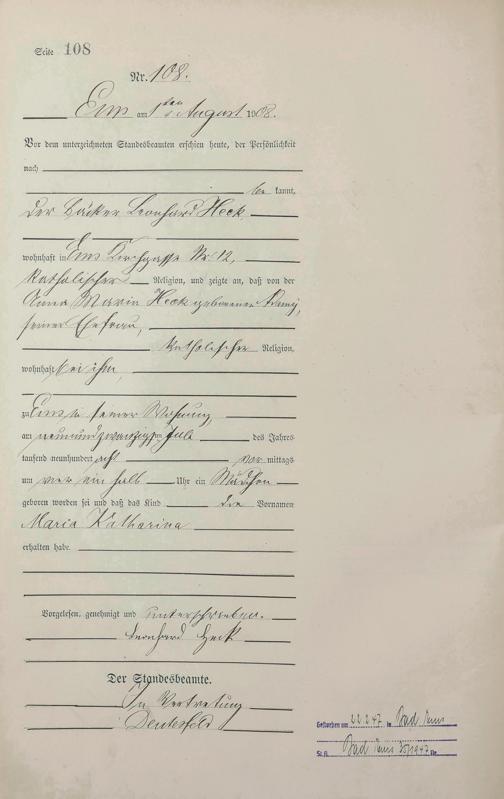 Seite 108
Nr. 108.
Ems am 1ten August 1908.
Vor dem unterzeichneten Standesbeamten erschien heute, der Persönlichkeit
nach
be kannt,
der Bäcker Leonhard Heck
wohnhaft in Ems Kirchgasse Nr 12,
katholischer Religion, und zeigte an, daß von der
Anna Maria Heck geborener
seiner Ehefrau,
katholischer Religion,
wohnhaft bei ihm,
zu Ems in seiner Wohnung,
am neunundzwanzigsten Juli des Jahres
tausend neunhundert acht vor mittags
um vier ein halb Uhr ein Mädchen
geboren worden sei und daß das Kind die Vornamen
Maria Katharina
erhalten habe.
Vorgelesen, genehmigt und unterschrieben.
Leonhard Heck
Der Standesbeamte.
In Vertretung
Gestorben am 22.2.47 in Bad Ems
St.A. Bad Ems 35/1947 Nr.